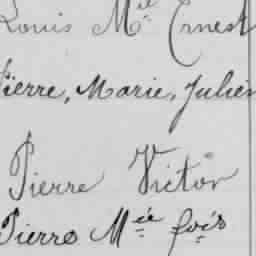 Louis Mie Ernest
Pierre, Marie, Julien
Pierre Victor
Pierre Mie fois